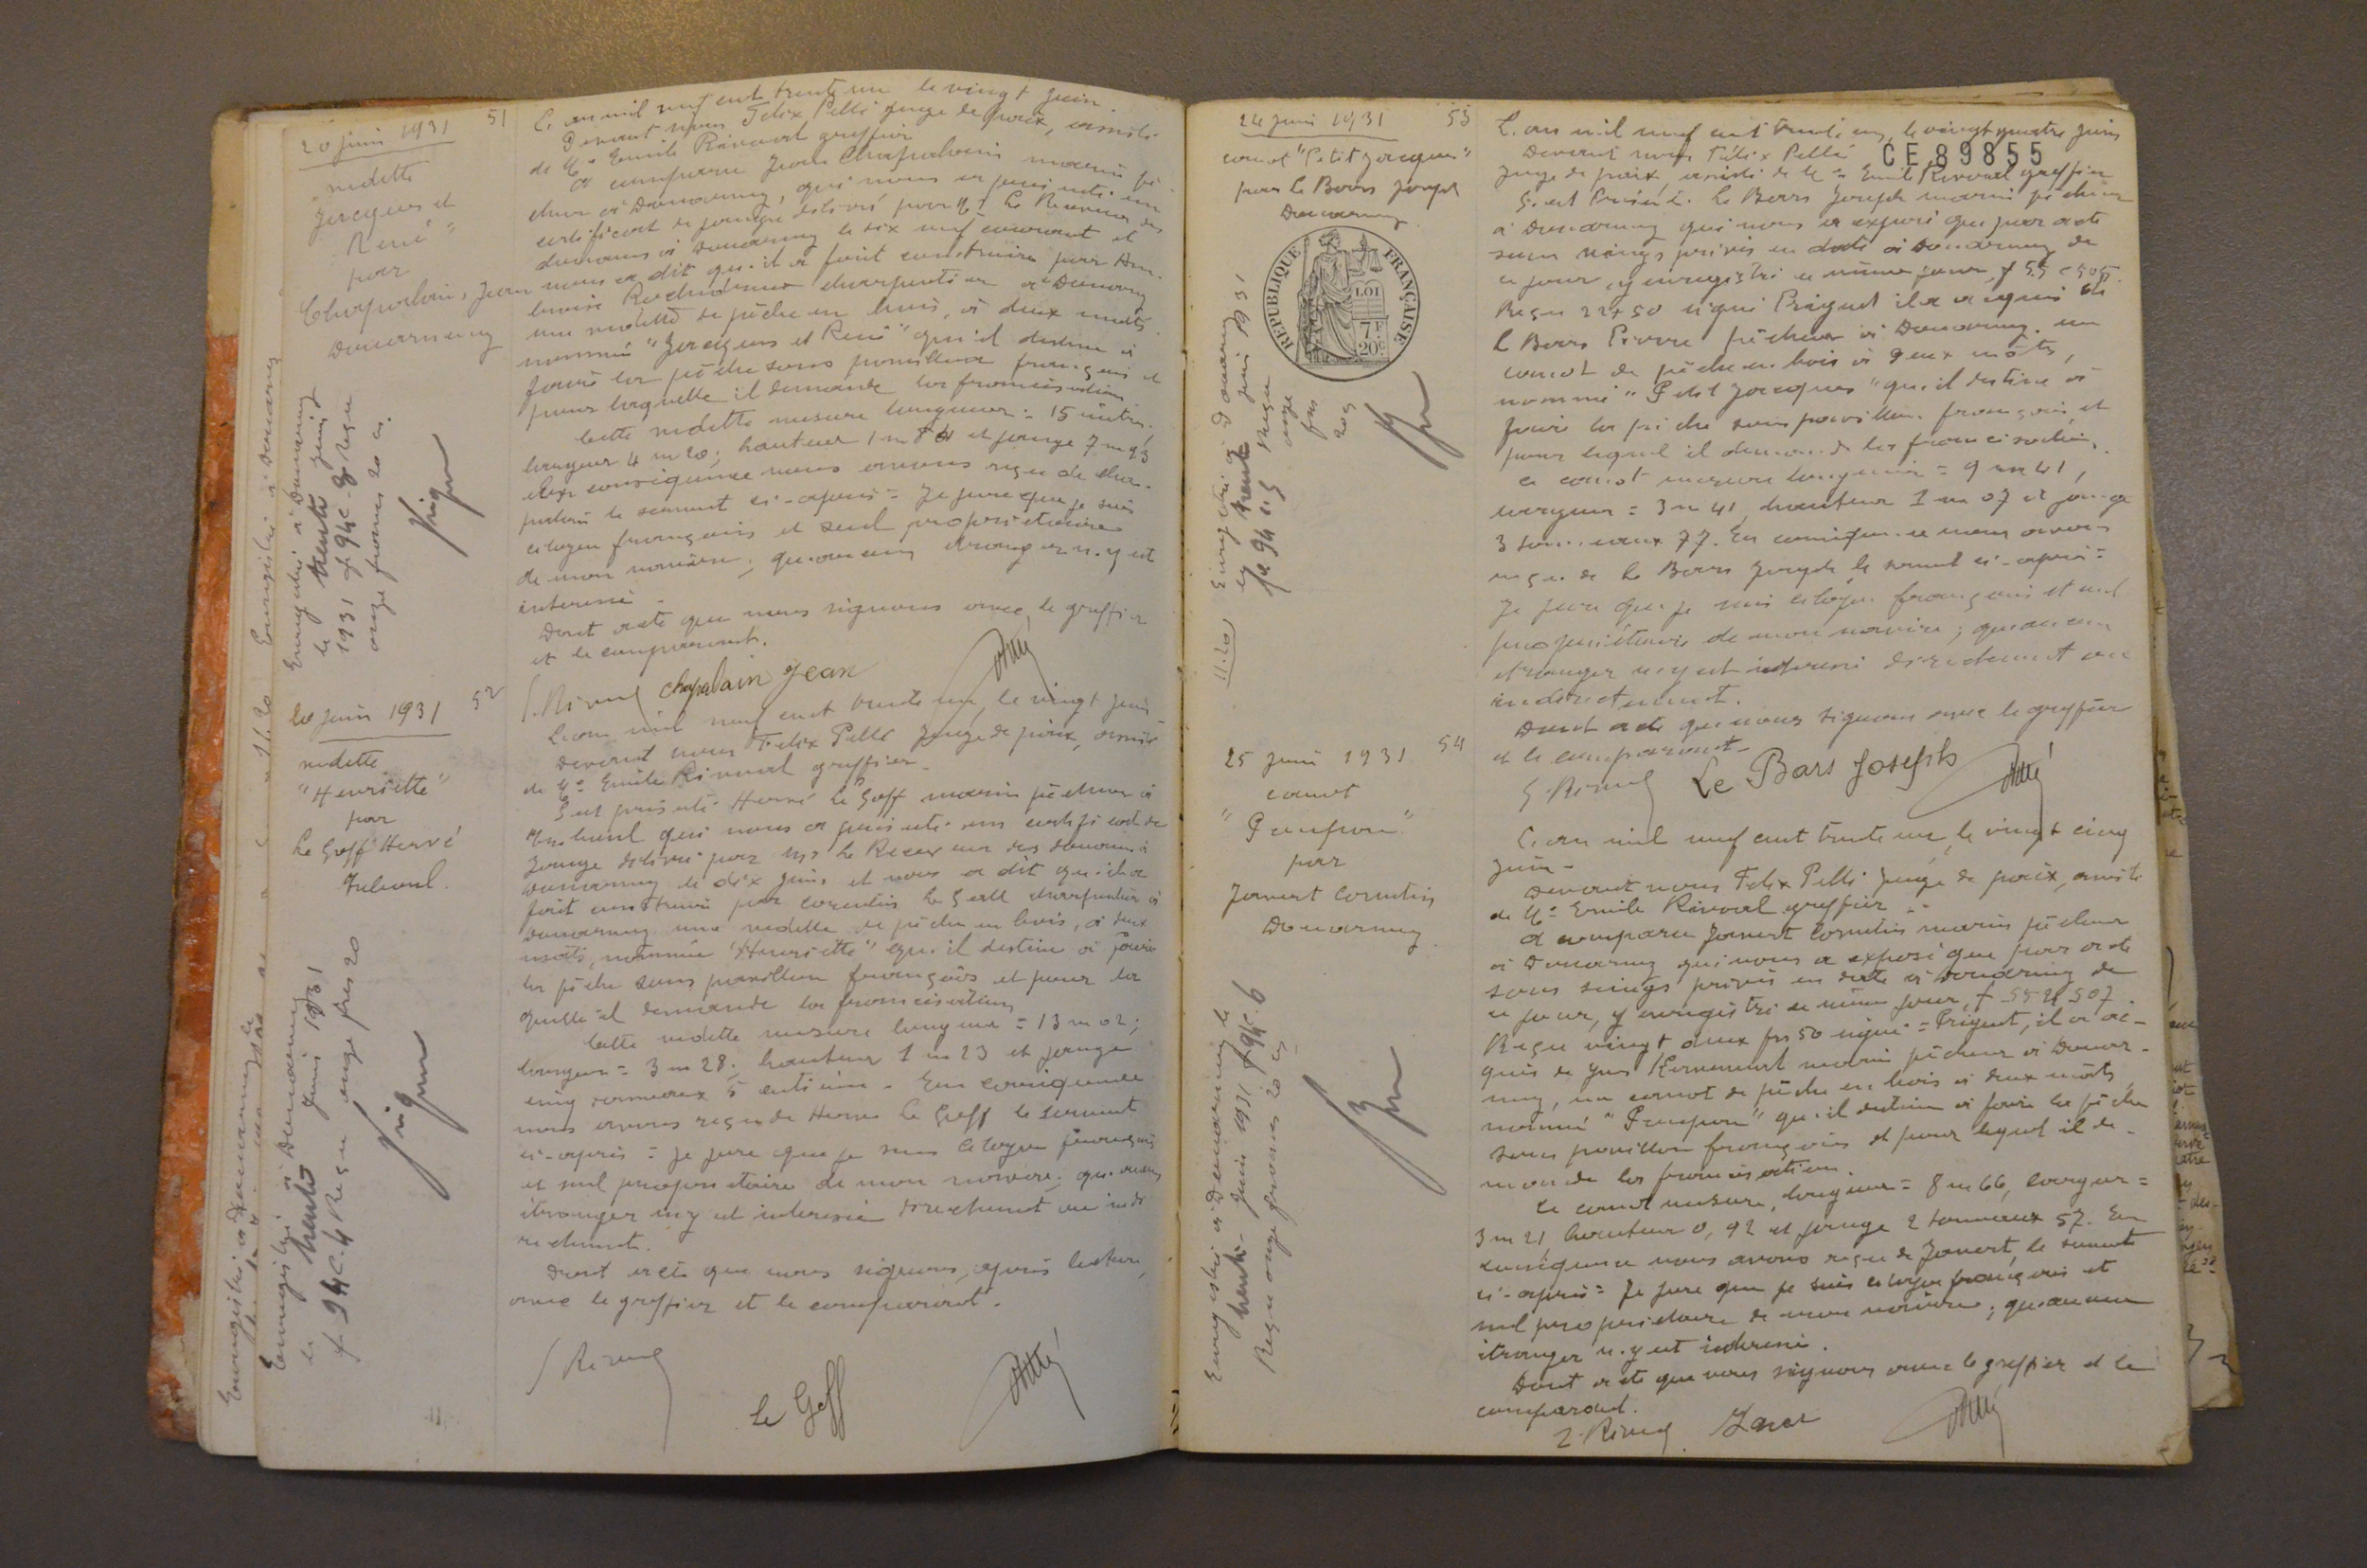 20 juin 1931 51
vedette
Jacques et
René"
pour
Chapalain, Jean
Douarnenez
Enregistré à Douarnenez
le trente juin
1931 f. 94 c. 8 Reçu
onze francs 20 c.
L'an mil neuf cent trente un le vingt juin.
Devant nous Félix Pellé juge de paix, assisté
de Me Emile Rivoal greffier
A comparu Jean Chapalain marin pê-
cheur à Douarnenez, qui nous a présenté un
certificat de jauge délivré par Mr le Receveur des
domaines à Douarnenez le dix neuf courant et
nous a dit qu'il a fait construire par
charpentier à Douarnenez
une vedette de pêche en bois, à deux mâts
nommée "Jacques et René" qu'il destine à
faire la pêche sous pavillon français et
pour laquelle il demande la francisation
Cette vedette mesure longueur = 15 mètres,
largeur 4 m 20; hauteur 1 m et jauge 7 93
En conséquence nous avons reçu de Cha-
palain le serment ci-après = Je jure que je suis
citoyen français et seul propriétaire
de mon navire; qu'aucun étranger n'y est
intéressé
Dont acte que nous signons avec le greffier
et le comparant.
E. Rivoal Chapalain Jean Pellé
20 juin 1931 52
vedette
"Henriette"
pour
Le Goff Hervé
Tréboul.
Enregistré à Douarnenez
le trente juin 1931
f. 94 c. 4 Reçu onze frs 20
L'an mil neuf cent trente un, le vingt juin
Devant nous Félix Pellé juge de paix, assisté
de Me Emile Rivoal greffier
S'est présenté Hervé Le Goff marin pêcheur à
Tréboul qui nous a présenté un certificat de
jauge délivré par Mr le Receveur des domaines à
Douarnenez le dix juin, et nous a dit qu'il a
fait construire par Corentin Le Gall charpentier à
Douarnenez une vedette de pêche en bois, à deux
mâts, nommée "Henriette" qu'il destine à faire
la pêche sous pavillon français et pour la
quelle il demande la francisation
Cette vedette mesure longueur = 13 m 02;
largeur = 3 m 28; hauteur 1 m 23 et jauge
cinq tonneaux 5 centièmes. En conséquence
nous avons reçu de Hervé Le Goff le serment
ci-après = je jure que je suis citoyen français
et seul propriétaire de mon navire; qu'aucun
étranger n'y est intéressé directement ou indi
rectement.
Dont acte que nous signons, après lecture,
avec le greffier et le comparant.
E. Rivoal Le Goff Pellé
24 juin 1931 53
canot "Petit Jacques"
pour Le Bars Joseph
Douarnenez
REPUBLIQUE FRANÇAISE
LOI
7F
20c
Enregistré à Douarnenez
le trente juin 1931
f. 94 c. 5 Reçu
onze
frs
20 c
11.20
CE89855
L'an mil neuf cent trente un, le vingt quatre juin
Devant nous Félix Pellé
juge de paix assisté de Me Emile Rivoal greffier
S'est présenté Le Bars Joseph marin pêcheur
à Douarnenez qui nous a exposé que par acte
sous seings privés en date à Douarnenez de
ce jour, y enregistré ce même jour, f 55 c 505
Reçu 22f 50 signé Prigent il a acquis de
Le Bars Pierre pêcheur à Douarnenez un
canot de pêche en bois à deux mâts,
nommé "Petit Jacques" qu'il destine à
faire la pêche sous pavillon français et
pour lequel il demande la francisation.
Ce canot mesure longueur = 9 m 41,
largeur = 3 m 41, hauteur 1 m 07 et jauge
3 tonneaux 77. En conséquence nous avons
reçu de Le Bars Joseph le serment ci-après =
Je jure que je suis citoyen français et seul
propriétaire de mon navire; qu'aucun
étranger n'y est intéressé directement ou
indirectement.
Dont acte que nous signons avec le greffier
et le comparant.
E. Rivoal Le Bars Joseph Pellé
25 juin 1931 54
canot
"Pompon"
par
Janert Corentin
Douarnenez
Enregistré à Douarnenez le
trente juin 1931 f 94 c. 6
Reçu onze francs 20 c
L'an mil neuf cent trente un, le vingt cinq
juin
Devant nous Félix Pellé juge de paix, assisté
de Me Emile Rivoal greffier
A comparu Janert Corentin marin pêcheur
à Douarnenez qui nous a exposé que par acte
sous seings privés en date à Douarnenez de
ce jour, y enregistré ce même jour, f 55 507.
Reçu vingt deux frs 50 signé = Prigent, il a ac-
quis de Yves marin pêcheur à Douar-
nenez, un canot de pêche en bois à deux mâts
nommé "Pompon" qu'il destine à faire la pêche
sous pavillon français et pour lequel il de-
mande la francisation.
Ce canot mesure, longueur = 8 m 66, largeur =
3 m 21 hauteur 0,92 et jauge 2 tonneaux 57. En
conséquence nous avons reçu de Janert, le serment
ci-après = Je jure que je suis citoyen français et
seul propriétaire de mon navire; qu'aucun
étranger n'y est intéressé.
Dont acte que nous signons avec le greffier et le
comparant.
E. Rivoal Pellé